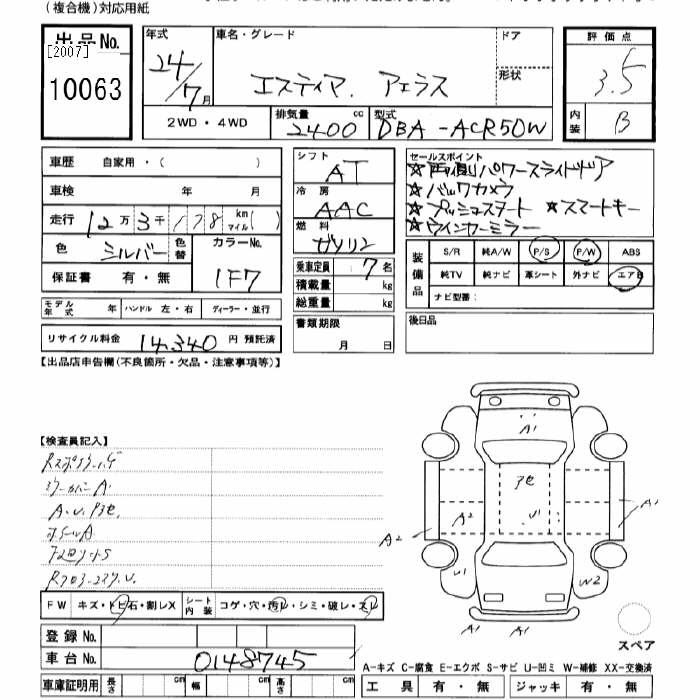 (複合機)対応用紙
出品No.
[2007]
10063
年式
24/7月
車名・グレード
エスティマ. アエラス
ドア
形状
評価点
3.5
内装
B
2WD・4WD
排気量
2400 cc
型式
DBA-ACR50W
車歴 自家用・( )
車検 年 月
走行 12万3千178 km マイル( )
色 シルバー 色替 カラーNo. 1F7
保証書 有・無
モデル年式 ハンドル 左・右 ディーラー・並行
リサイクル料金 14,340 円 預託済
シフト
AT
冷房
AAC
燃料
ガソリン
乗車定員 7名
積載量 kg
総重量 kg
書類期限
月 日
セールスポイント
☆両側パワースライドドア
☆バックカメラ
☆プッシュスタート ☆スマートキー
☆ウインカーミラー
装備品
S/R 純A/W P/S P/W ABS
純TV 純ナビ 革シート 外ナビ エアB
ナビ型番:
後日品
【出品店申告欄(不良箇所・欠品・注意事項等)】
【検査員記入】
A.U.P色.
A1
ア色
U1
A2
A2
A1
A1
U1
W2
A1 A1
FW キズ・トビ石・割レX シート内装 コゲ・穴・汚レ・シミ・破レ・スレ
登録No.
車台No. 0148745
スペア
A-キズ C-腐食 E-エクボ S-サビ U-凹ミ W-補修 XX-交換済
車庫証明用 長さ cm 幅 cm 高さ cm
工具 有・無 ジャッキ 有・無